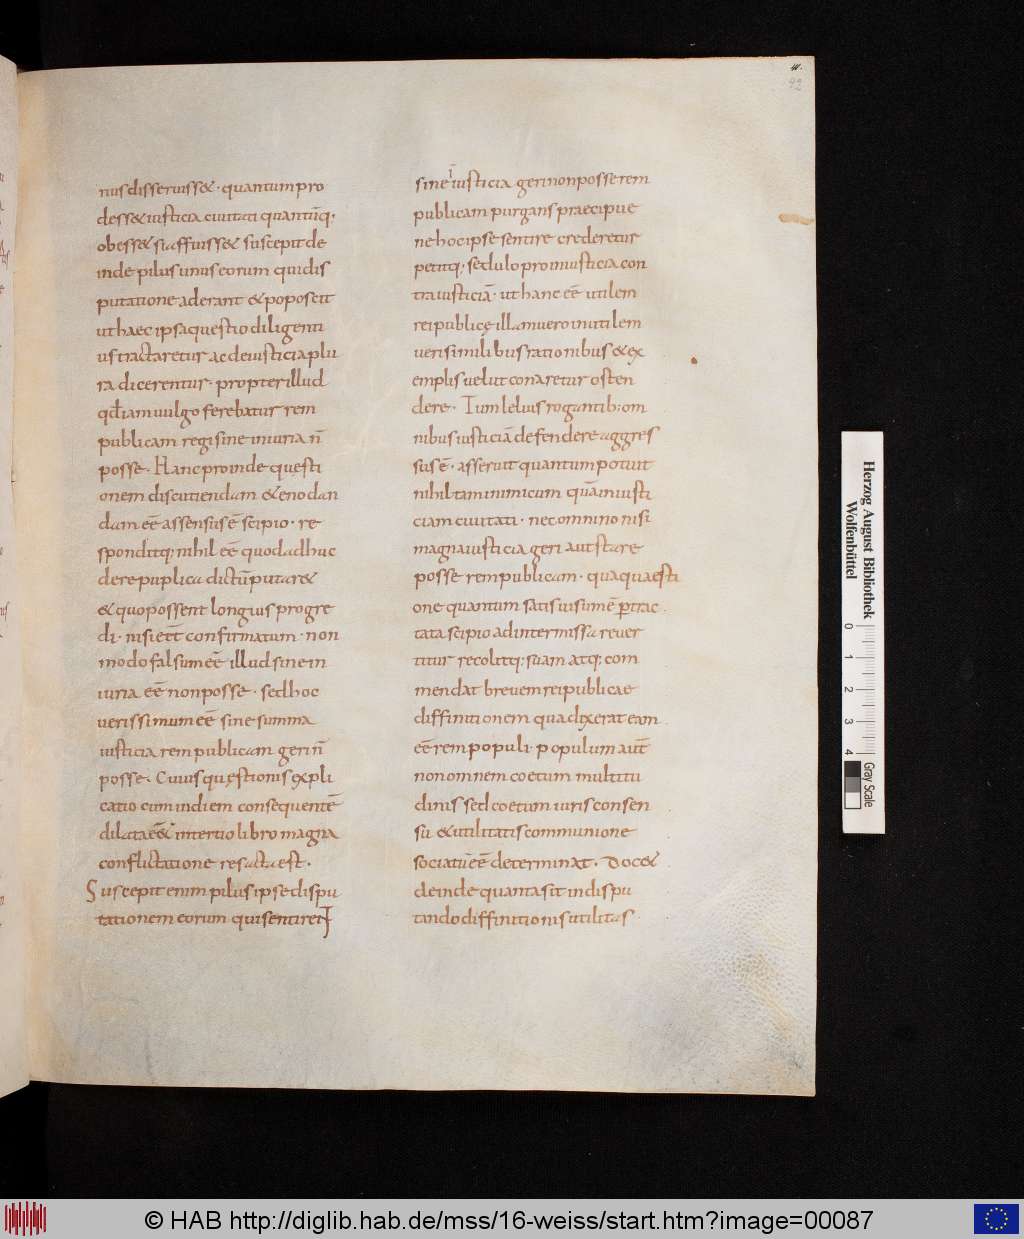 nius disseruiss&· quantum pro
dess& iusticia ciuitati quantūq·
obess& si affuiss& suscepit de
inde pilus unus eorum qui dis
putatione aderant & poposcit
ut haec ipsa questio diligenti
us tractaretur ac de iusticia plu
ra dicerentur· propter illud
qđ iam uulgo ferebatur rem
publicam regi sine iniuria ñ
posse· Hanc proinde questi
onem discutiendam & enodan
dam eē assensus ē scipio· re
sponditq; nihil eē quod adhuc
dere puplica dictū putar&
& quo possent longius progre
di· nisi eēt confirmatum· non
modo falsum eē illud sine in
iuria eē non posse· sed hoc
uerissimum eē sine summa
iusticia rem publicam geri ñ
posse· Cuius quęstionis expli
catio cum in diem consequentē
dilata e& in tertio libro magna
conflictatione res acta est·
Suscepit enim pilus ipse dispu
tationem eorum qui sentirent
sine iusticia geri non posse rem
publicam purgans praecipue
ne hoc ipse sentire crederetur
petitq; sedulo pro iniusticia con
tra iusticiā· ut hanc eē utilem
rei publicę illam uero inutilem
uerisimilibus rationibus & ex
emplis uelut conaretur osten
dere· Tum lelius rogantib; om
nibus iusticiā defendere aggres
sus ē· asseruit quantum potuit
nihil tam inimicum quā iniusti
ciam ciuitati· nec omnino nisi
magna iusticia geri aut stare
posse rem publicam· qua quaesti
one quantum satis uisum ē ptrac
tata scipio ad intermissa reuer
titur recolitq; suam atq; com
mendat breuem rei publicae
diffinitionem qua dixerat eam
eē rem populi· populum aūt
non omnem coetum multitu
dinis sed coetum iuris consen
su & utilitatis communione
sociatū eē determinat· Doc&
deinde quanta sit in dispu
tando diffinitionis utilitas
Herzog August Bibliothek
Wolfenbüttel
0 1 2 3 4
Gray Scale
© HAB http://diglib.hab.de/mss/16-weiss/start.htm?image=00087